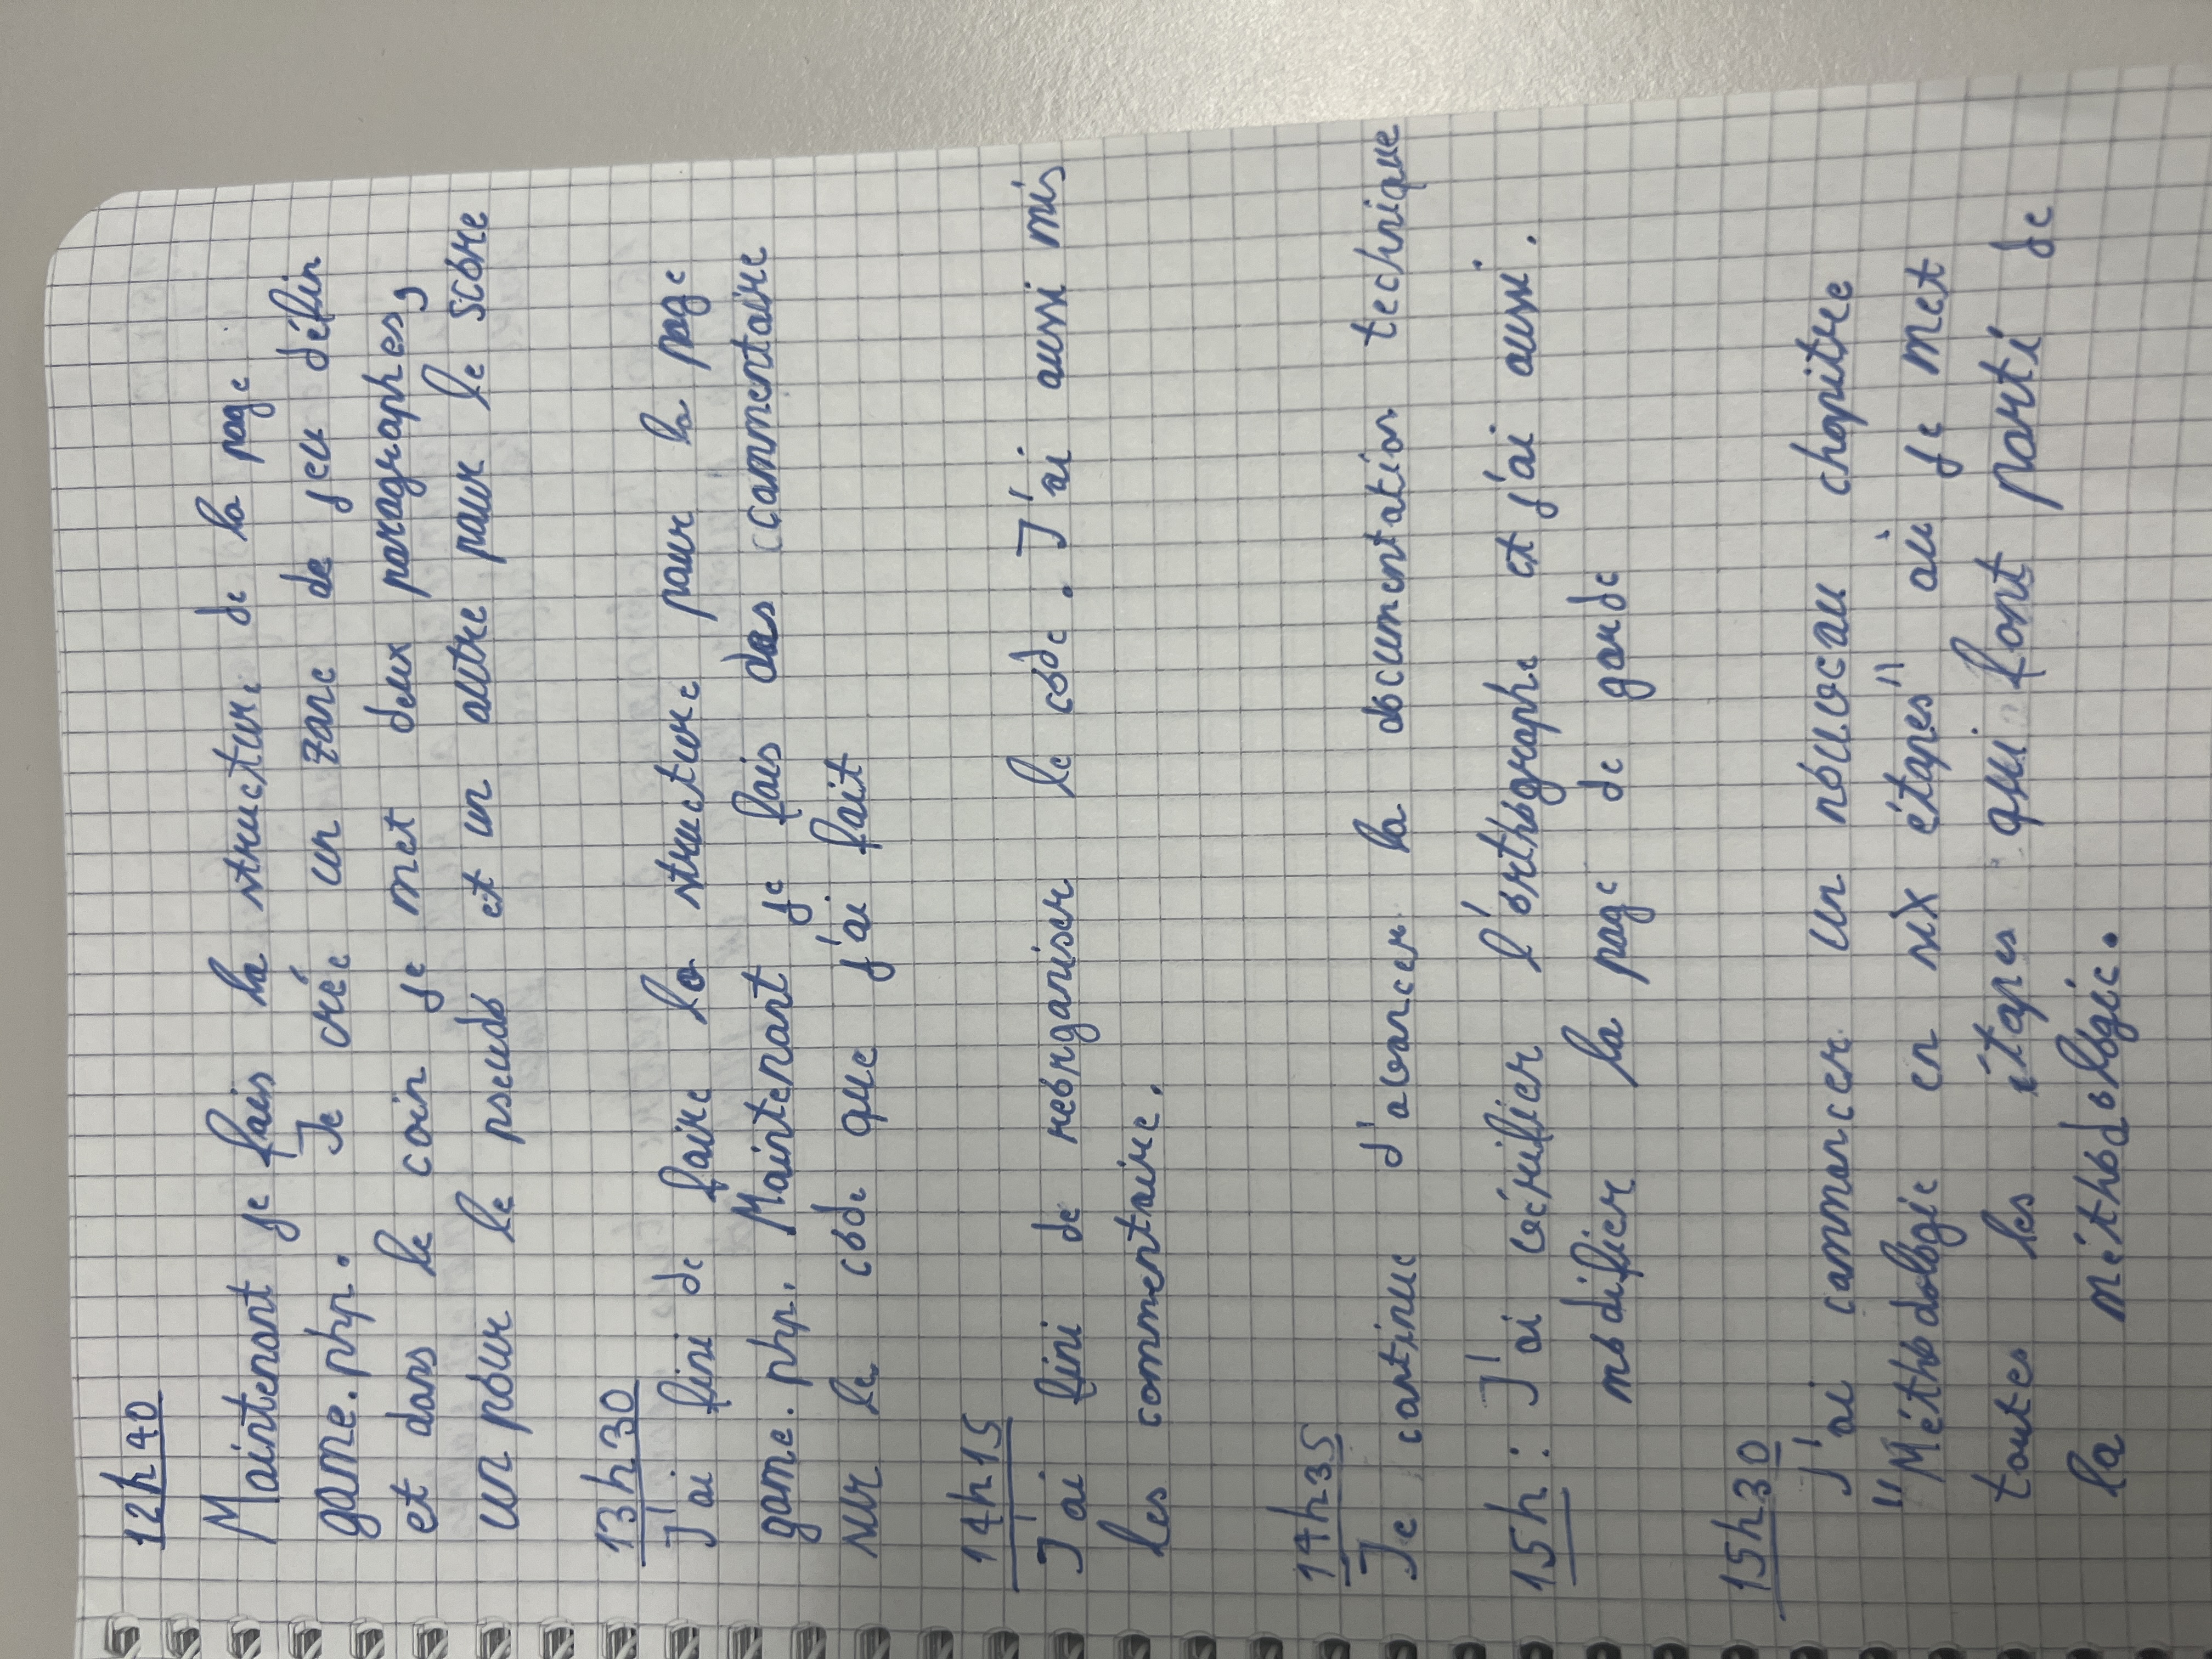 12h40
Maintenant je fais la structure de la page
game.php. Je crée un zone de jeu défin
et dans le coin je met deux paragraphes,
un pour le pseudo et un autre pour le score
13h30
J'ai fini de faire la structure pour la page
game.php. Maintenant je fais des commentaire
sur le code que j'ai fait
14h15
J'ai fini de reorganiser le code. J'ai aussi mis
les commentaire.
14h35
Je continue d'avancer la documentation technique
15h : J'ai vérifier l'orthographe et j'ai aussi.
modifier la page de garde
15h30
J'ai commencer un nouveau chapitre
"Méthodologie en six étapes" où je met
toutes les étapes qui font parti de
la méthodologie.